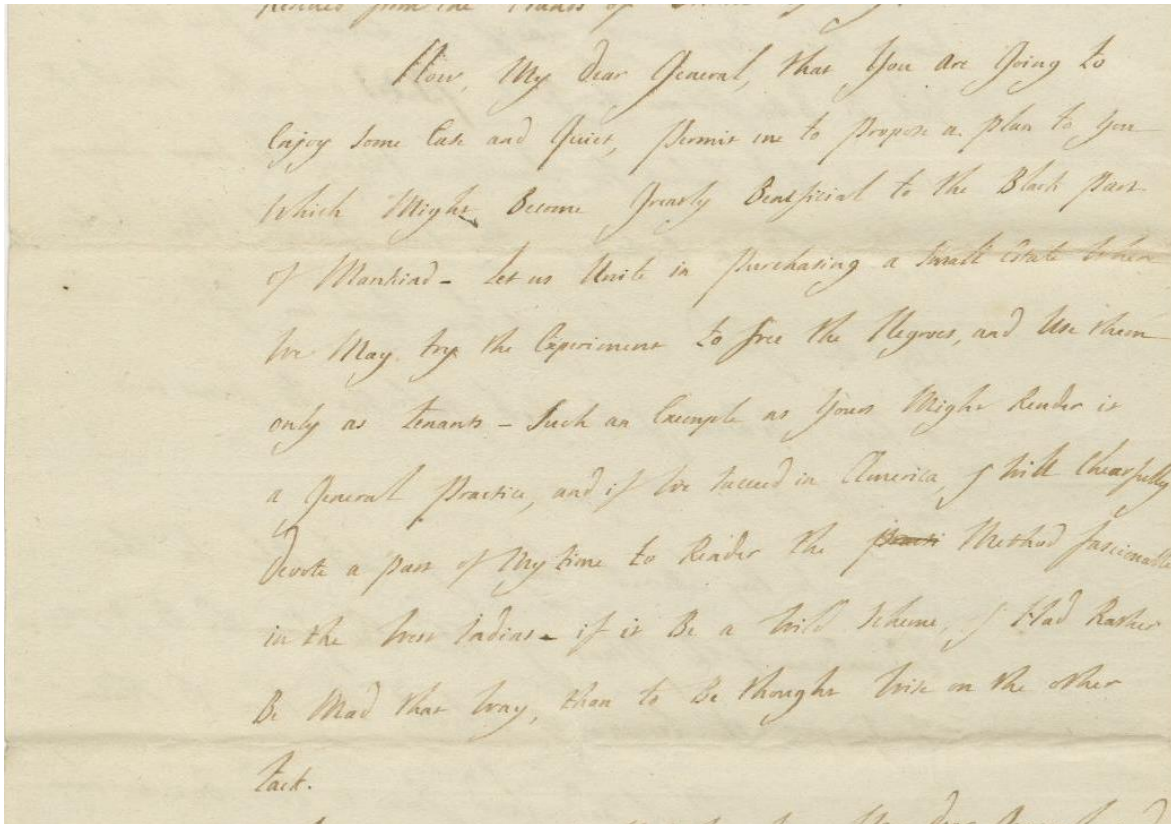 from the Hands of
Now, My dear General, that You are Going to
Enjoy some Ease and Quiet, Permit me to Propose a plan to you
Which Might Become Greatly Beneficial to the Black Part
of Mankind - Let us Unite in Purchasing a Small Estate Where
We May try the Experiment to free the Negroes, and Use them
only as tenants - Such an Example as Yours Might Render it
a General Practice, and if We succeed in America, I Will Chearfully
devote a part of My time to Render the Method fascionable
in the West Indias - if it Be a Wild Scheme, I Had Rather
Be Mad that Way, than to Be thought Wise on the other
tack.